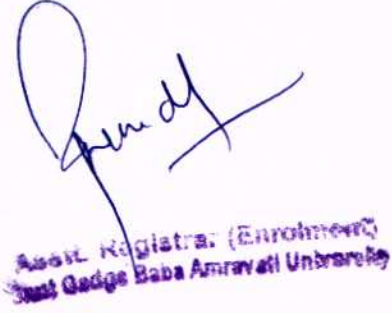 Asstt. Registrar (Enrolment)
Sant Gadge Baba Amravati University